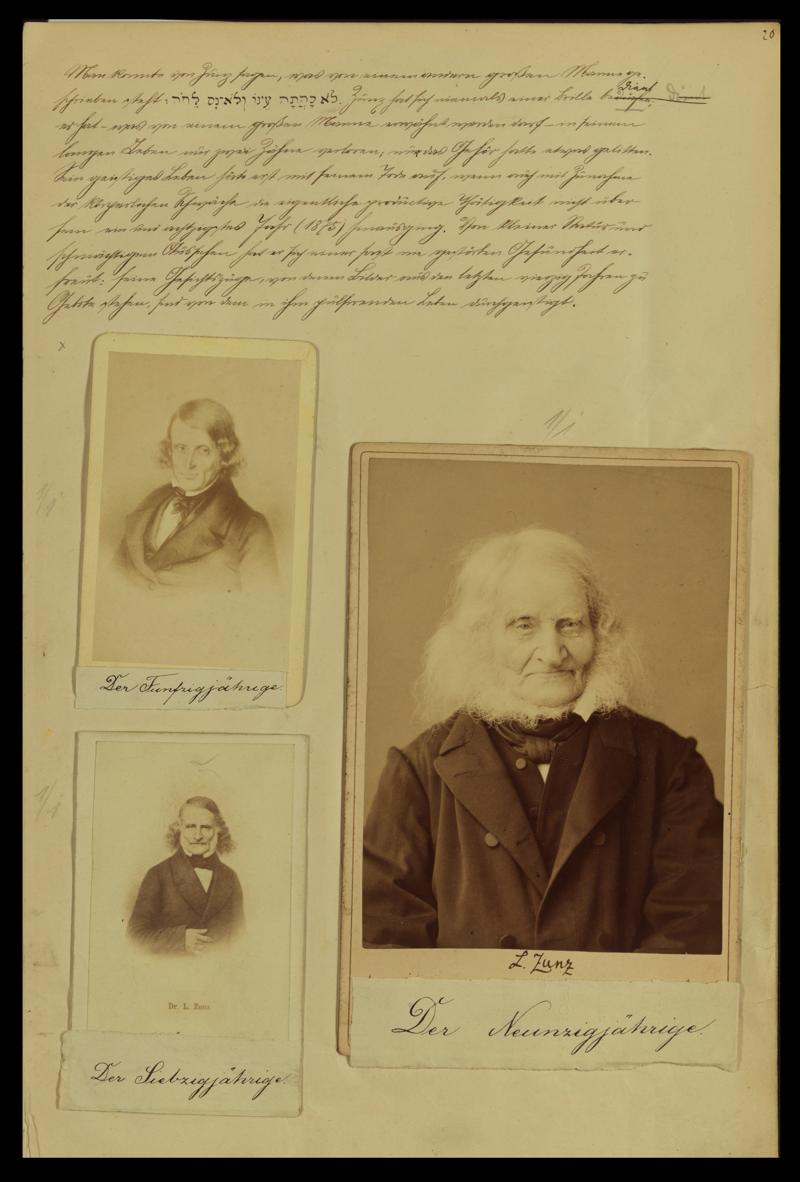 20
Man konnte von Zunz sagen, was von einem andern großen Manne ge-
schrieben steht: לא כָהֲתָה עֵינוֹ וְלֹא נָס לֵחֹה. Zunz hat sich niemals einer Brille bedient
er hat – was von einem großen Manne erwähnt werden darf – in seinem
langen Leben nur zwei Zähne verloren; nur das Gehör hatte etwas gelitten.
Sein geistiges Leben hörte erst mit seinem Tode auf, wenn auch mit Zunahme
der körperlichen Schwäche die eigentliche productive Thätigkeit nicht über
sein ein und achtzigstes Jahr (1875) hinausging. Von kleiner Statur und
schmächtigem Aussehen hat er sich einer fast nie gestörten Gesundheit er-
freut; seine Gesichtszüge, von denen Bilder aus den letzten vierzig Jahren zu
Gebote stehen, sind von dem in ihm pulsirenden Leben durchgeistigt.
x
1/1
1/1
Der Funfzigjährige.
1/1
Dr. L. Zunz
Der Siebzigjährige.
L. Zunz
Der Neunzigjährige.